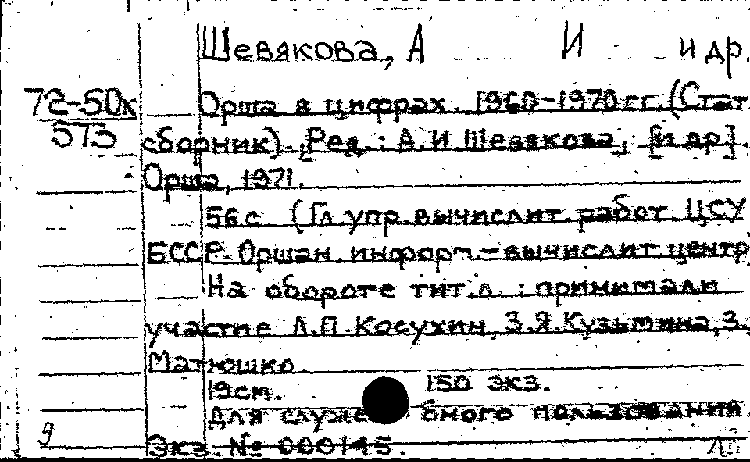 Шевякова, А И и др.
72-50к Орша в цифрах. 1960-1970 гг. (Стат
573 сборник). [Ред.: А.И Шевякова, [и др].
Орша, 1971.
56 с (Гл. упр. вычислит работ ЦСУ
БССР. Оршан. информ.-вычислит центр
На обороте тит.л.: принимали
участие Л.П. Косухин, З.Я. Кузьмина, З.
Матюшко.
19 см. 150 экз.
Для служебного пользования
9 Экз. № 000145.